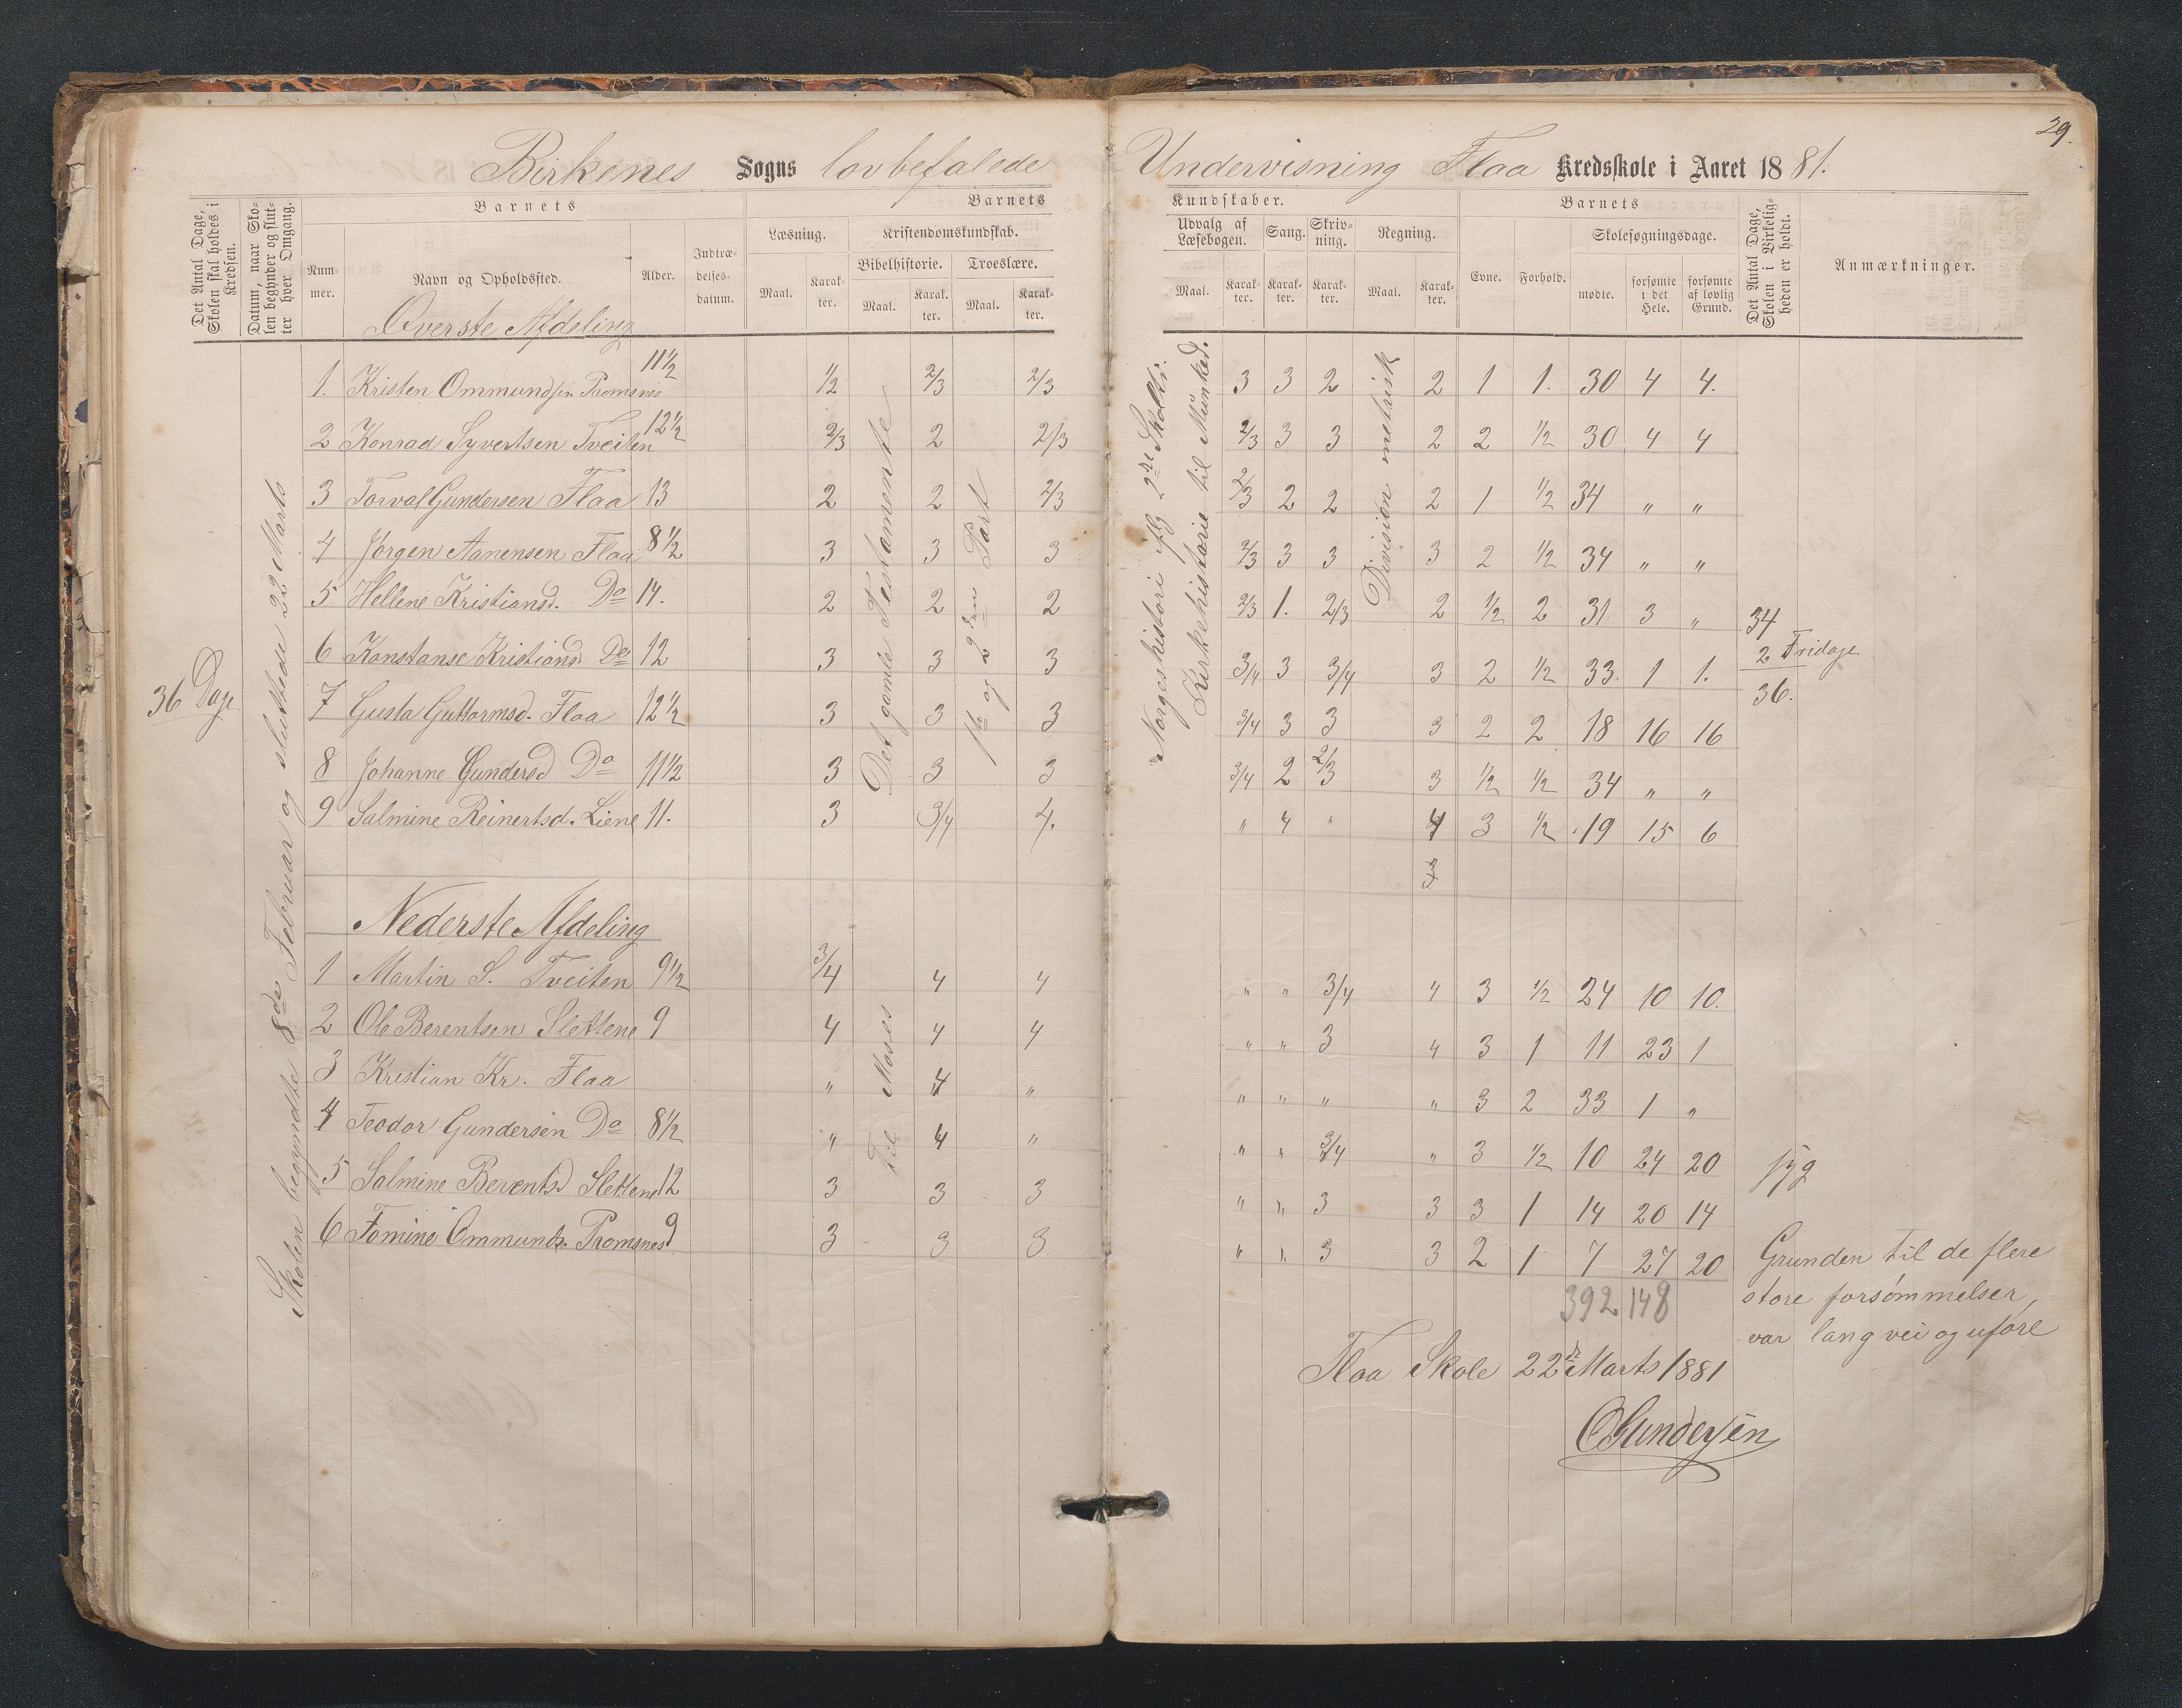 29.
Birkenes Sogns lovbefalede Undervisning Flaa Kredsskole i Aaret 1881.
Det Antal Dage, Skolen skal holdes i Kredsen.
Datum, naar Skolen begynder og slutter hver Omgang.
Barnets
Barnets
Kundskaber.
Barnets
Det Antal Dage, Skolen i Virkeligheden er holdt.
Anmærkninger.
Nummer.
Navn og Opholdssted.
Alder.
Indtrædelsesdatum.
Læsning.
Kristendomskundskab.
Udvalg af Læsebogen.
Sang.
Skrivning.
Regning.
Evne.
Forhold.
Skolesøgningsdage.
Bibelhistorie.
Troeslære.
Maal. Karakter. Maal. Karakter. Maal. Karakter.
Maal. Karakter. Karakter. Karakter. Maal. Karakter.
mødte. forsømte i det Hele. forsømte af lovlig Grund.
36 Dage
Skolen begyndte 8de Februar og sluttede 22 Marts
Det gamle Testamente
1ste og 2den Part
Norgeshistori
Kirkehistorie til Munked.
Division metrisk
Øverste Afdeling
1. Kristen Ommundsen Tromsnes 11½ 1/2 2/3 2/3 3 3 2 2 1 1. 30 4 4.
2 Konrad Syvertsen Tveiten 12½ 2/3 2 2/3 2/3 3 3 2 2 1/2 30 4 4
3 Torval Gundersen Flaa 13 2 2 2/3 2/3 2 2 2 1 1/2 34 " "
4 Jørgen Aanensen Flaa 8½ 3 3 3 2/3 3 3 3 2 1/2 34 " "
5 Hellene Kristiansd. Do 14. 2 2 2 2/3 1. 2/3 2 1/2 2 31 3 "
6 Konstanse Kristiansd. Do 12 3 3 3 3/4 3 3/4 3 2 1/2 33 1 1.
7 Gusta Guttormsd. Flaa 12½ 3 3 3 3/4 3 3 3 2 2 18 16 16
8 Johanne Gundersd Do 11½ 3 3 3 3/4 2 2/3 3 1/2 1/2 34 " "
9 Salmine Reinertsd. Liene 11. 3 3/4 4. " 4 " 4 3 1/2 19 15 6
34
2 Fridage
36.
Nederste Afdeling
Til Moses
1 Martin S. Tveiten 9½ 3/4 4 4 " " 3/4 4 3 1/2 24 10 10.
2 Ole Berentsen Slettene 9 4 4 4 " " 3 4 3 1 11 23 1
3 Kristian Kr. Flaa " 4 " " " " " 3 2 33 1 "
4 Teodor Gundersen Do 8½ " 4 " " " 3/4 " 3 1/2 10 24 20 syg
5 Salmine Berentsd Slettene 12 3 3 3 " " 3 3 3 1 14 20 14
6 Tomine Ommunds. Tromsnes 9 3 3 3 " " 3 3 2 1 7 27 20
392 148
Grunden til de flere
store forsømmelser,
var lang vei og uføre
Flaa Skole 22de Marts 1881
O Gundersen